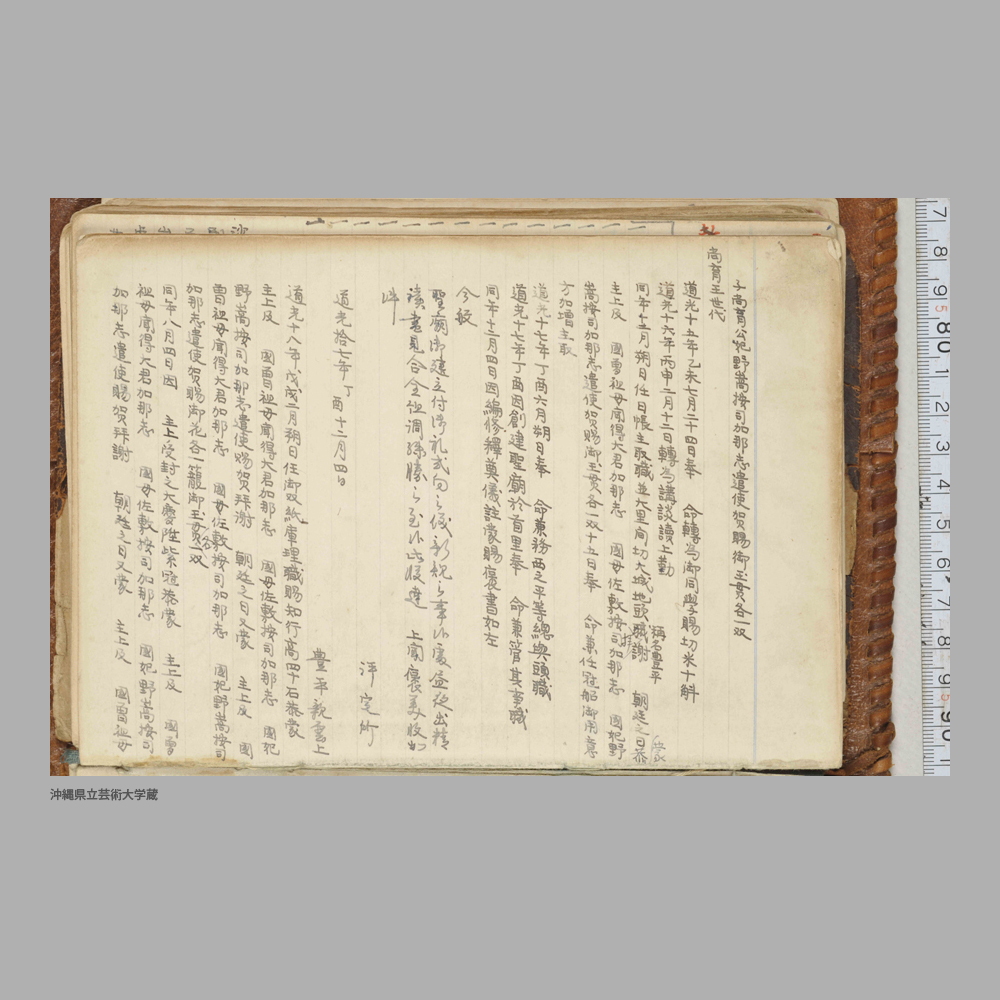 子尚育公妃野嵩按司加那志遣使賀賜御玉貫各一双
尚育王世代
道光十五年乙未七月二十四日奉 命轉為御同學賜切米十斛
道光十六年丙申二月十二日轉為講談讀上勤
稱名豊平
同年十二月朔日任日帳主取職並大里間切大城地頭職拝謝 朝廷之日恭蒙
主上及 國曽祖母聞得大君加那志 國母佐敷按司加那志 國妃野
嵩按司加那志遣使賀賜御玉貫各一双十五日奉 命兼任冠船御用意
方加増主取
道光十七年丁酉六月朔日奉 命兼務西之平等總與頭職
道光十七年丁酉因創建聖廟於首里奉 命兼管其事職
同年十二月四日因編修釋奠儀註蒙賜褒書如左
今般
聖廟御建立付御礼式向之儀新規之事候處昼夜出精
讀書見合全相調殊勝之至候此段達 上聞褒美被
件
道光拾七年丁酉十二月四日
評定所
豊平親雲上
道光十八年戊戌二月朔日任御双紙庫理職賜知行高四十石恭蒙
主上及 國曽祖母聞得大君加那志 國母佐敷按司加那志 國妃
野嵩按司加那志遣使賜賀拝謝 朝廷之日又蒙 主上及 國
曽祖母聞得大君加那志 國母佐敷按司加那志 國妃野嵩按司
加那志遣使賀賜御花各一籠御玉貫各一双
同年八月四日因 主上受封之大慶陞紫冠恭蒙 主上及 國曽
祖母聞得大君加那志 國母佐敷按司加那志 國妃野嵩按司
加那志遣使賜賀拝謝 朝廷之日又蒙 主上及 國曽祖母
7 8 9 80 1 2 3 4 5 6 7 8 9 90 1
沖縄県立芸術大学蔵